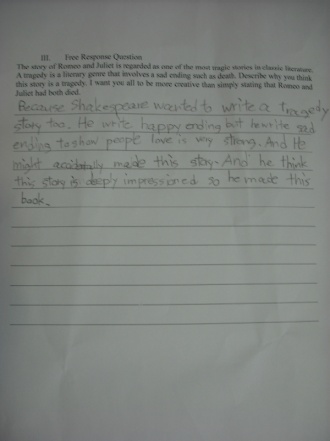 III. Free Response Question
The story of Romeo and Juliet is regarded as one of the most tragic stories in classic literature.
A tragedy is a literary genre that involves a sad ending such as death. Describe why you think
this story is a tragedy. I want you all to be more creative than simply stating that Romeo and
Juliet had both died.
Because Shakespeare wanted to write a tragedy
story too. He write happy ending but he write sad
ending to show people love is very strong. And He
might accidentally made this story. And he think
this story is deeply impressioned so he made this
book.